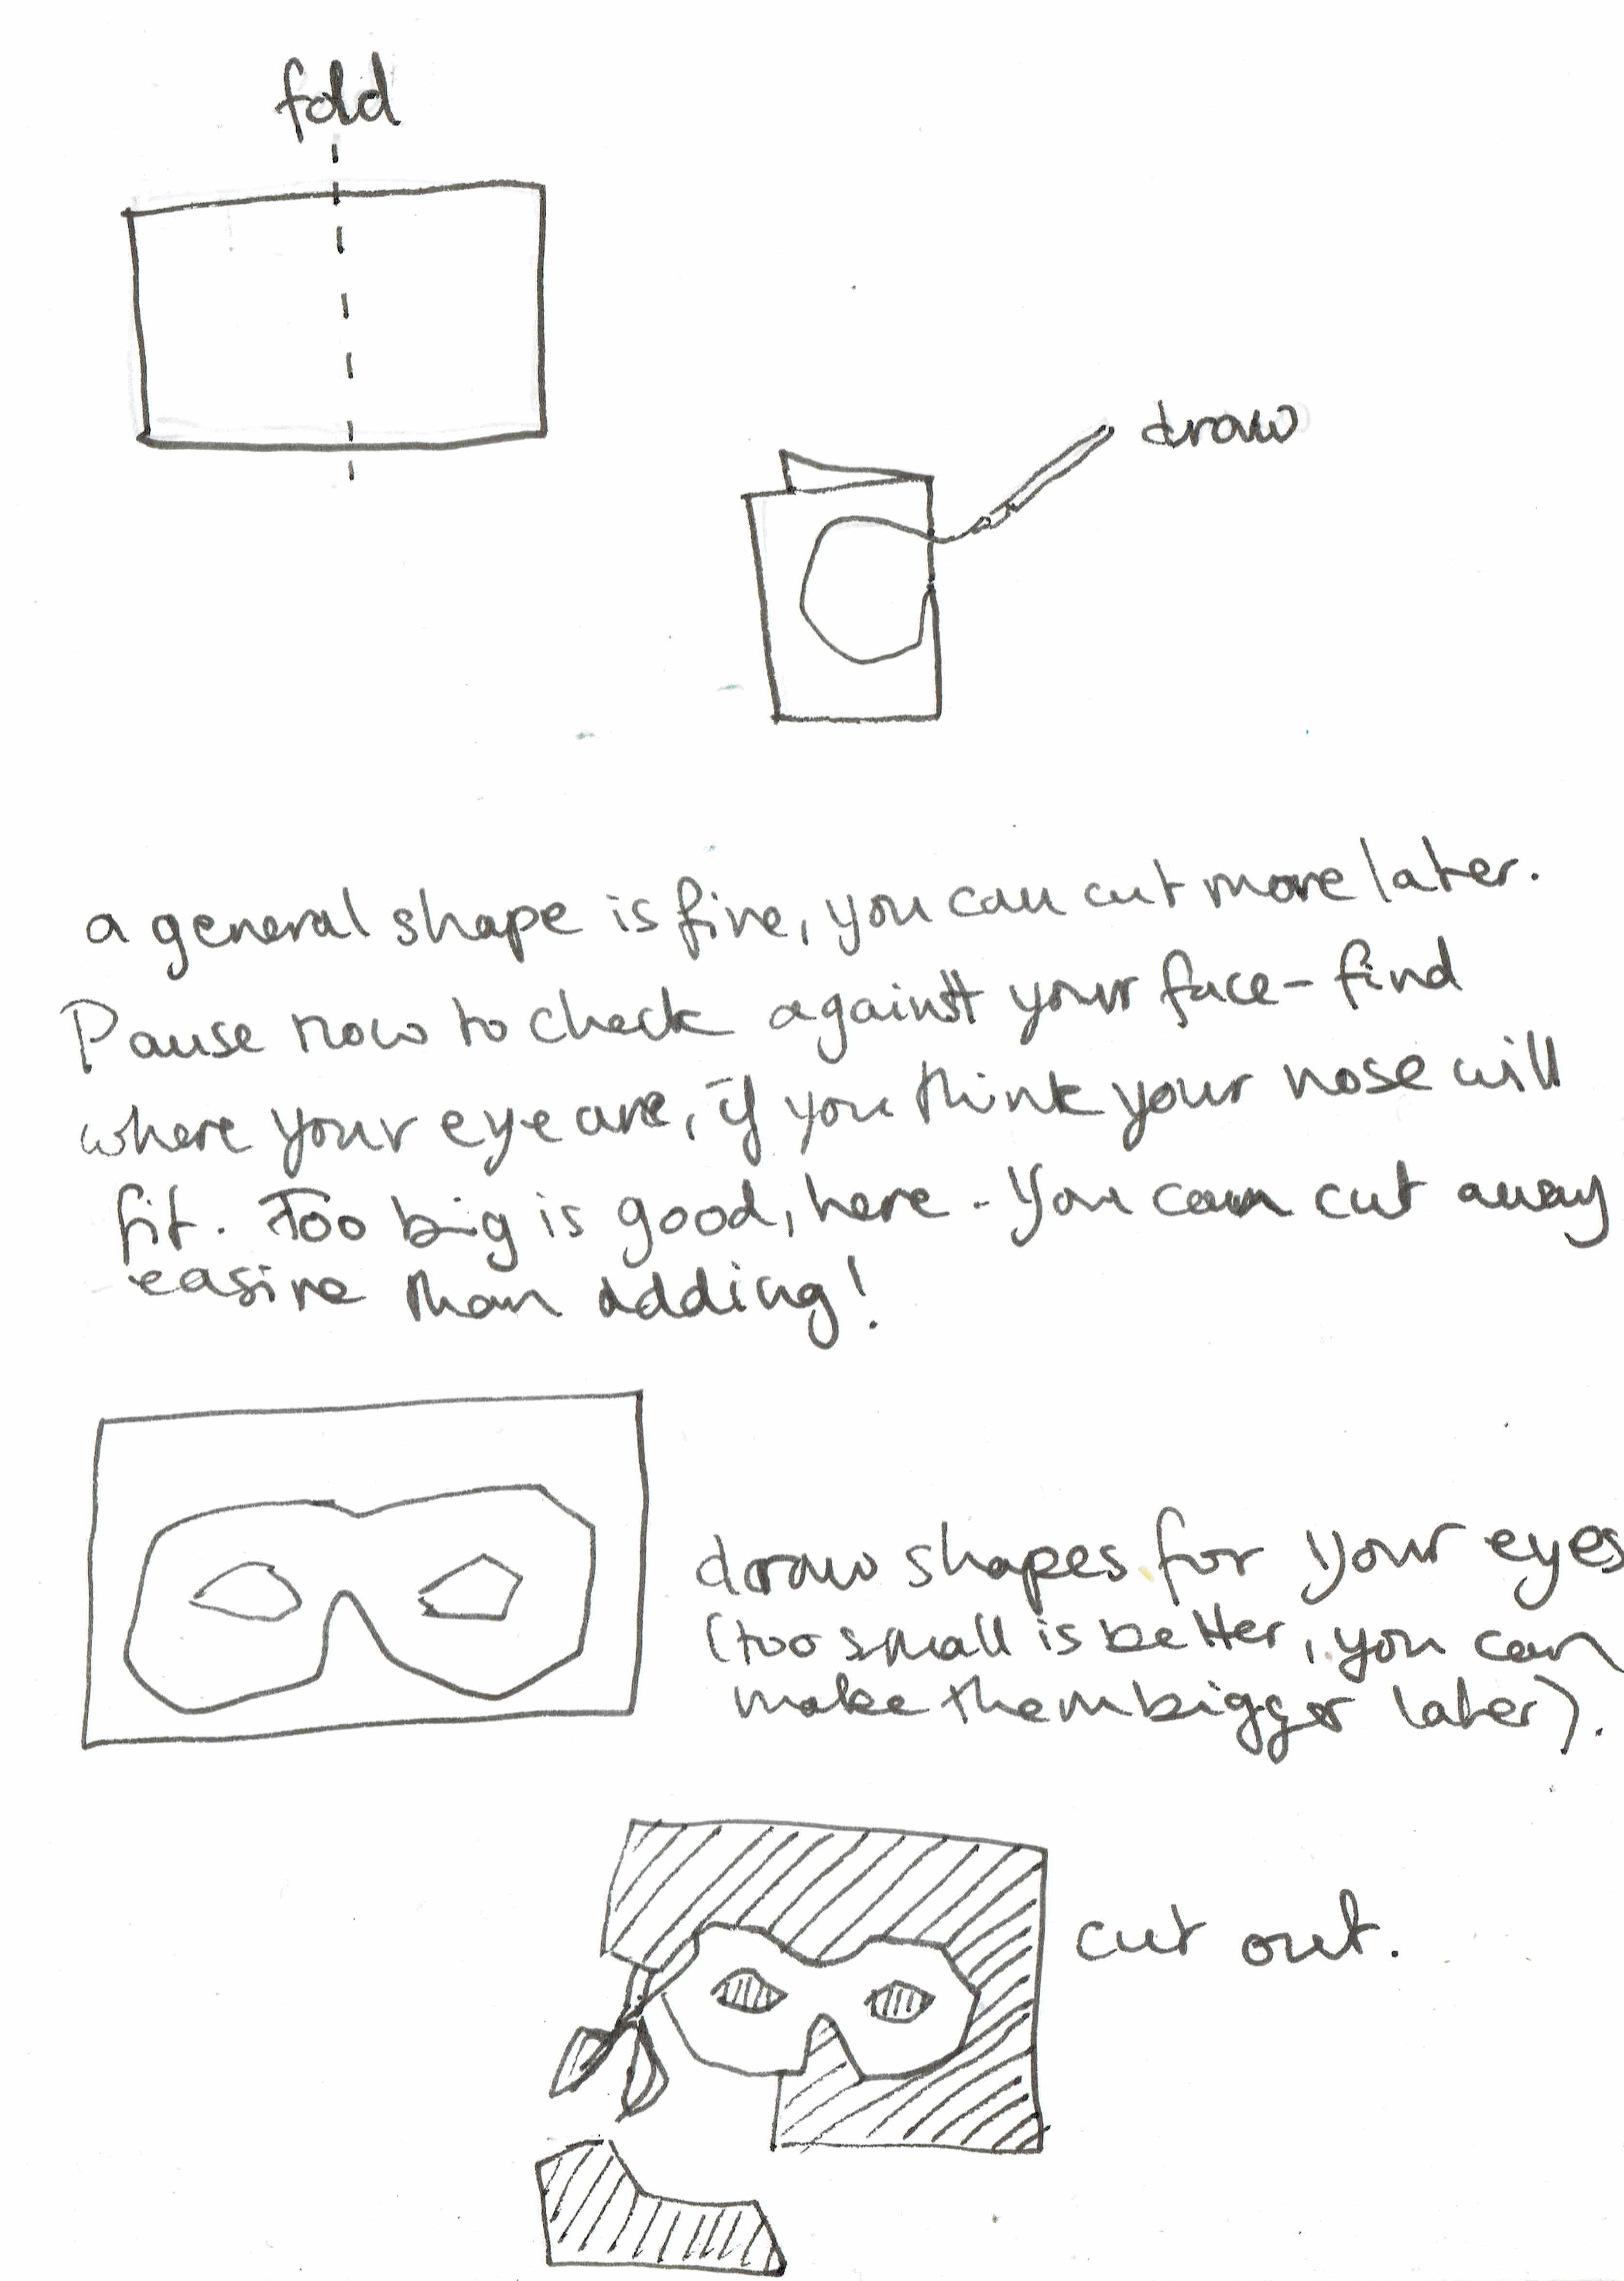 fold
draw
a general shape is fine, you can cut more later.
Pause now to check against your face - find
where your eye are, if you think your nose will
fit. Too big is good, here - you can cut away
easire than adding!
draw shapes for your eyes
(too small is better, you can
make them bigger later).
cut out.